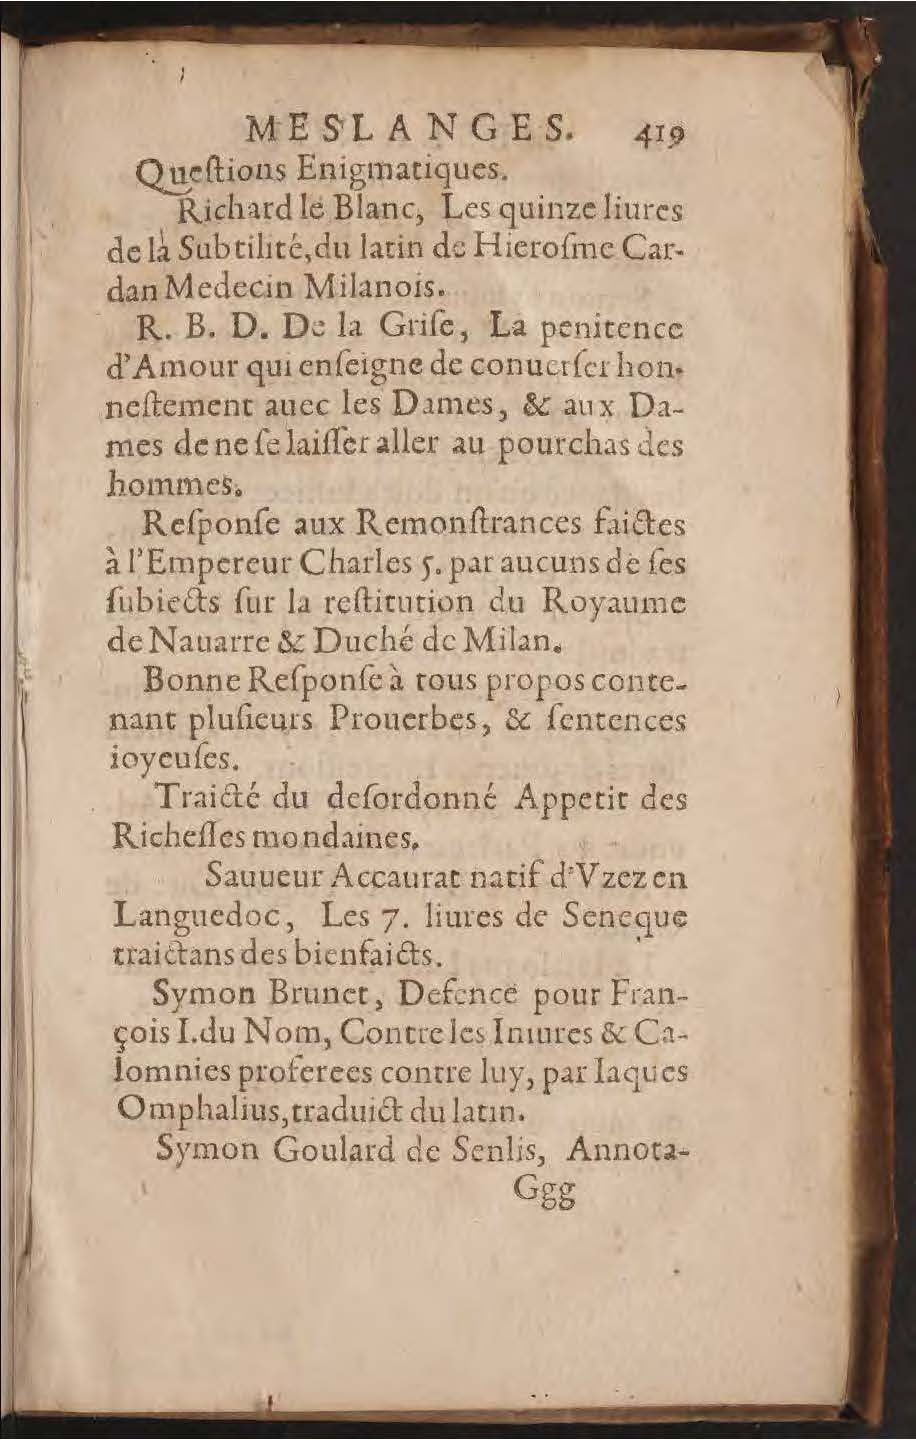 MESLANGES. 419
Queſtions Enigmatiques.
Richard le Blanc, Les quinze liures
de la Subtilité, du latin de Hieroſme Car-
dan Medecin Milanois.
R. B. D. De la Griſe, La penitence
d'Amour qui enſeigne de conuerſer hon-
neſtement auec les Dames, & aux Da-
mes de ne ſe laiſſer aller au pourchas des
hommes.
Reſponſe aux Remonſtrances faictes
à l'Empereur Charles 5. par aucuns de ſes
ſubiects ſur la reſtitution du Royaume
de Nauarre & Duché de Milan.
Bonne Reſponſe à tous propos conte-
nant pluſieurs Prouerbes, & ſentences
ioyeuſes.
Traicté du deſordonné Appetit des
Richeſſes mondaines.
Sauueur Accaurat natif d'Vzez en
Languedoc, Les 7. liures de Seneque
traictans des bienfaicts.
Symon Brunet, Defence pour Fran-
çois I. du Nom, Contre les Iniures & Ca-
lomnies proferees contre luy, par Iaques
Omphalius, traduict du latin.
Symon Goulard de Senlis, Annota-
Ggg